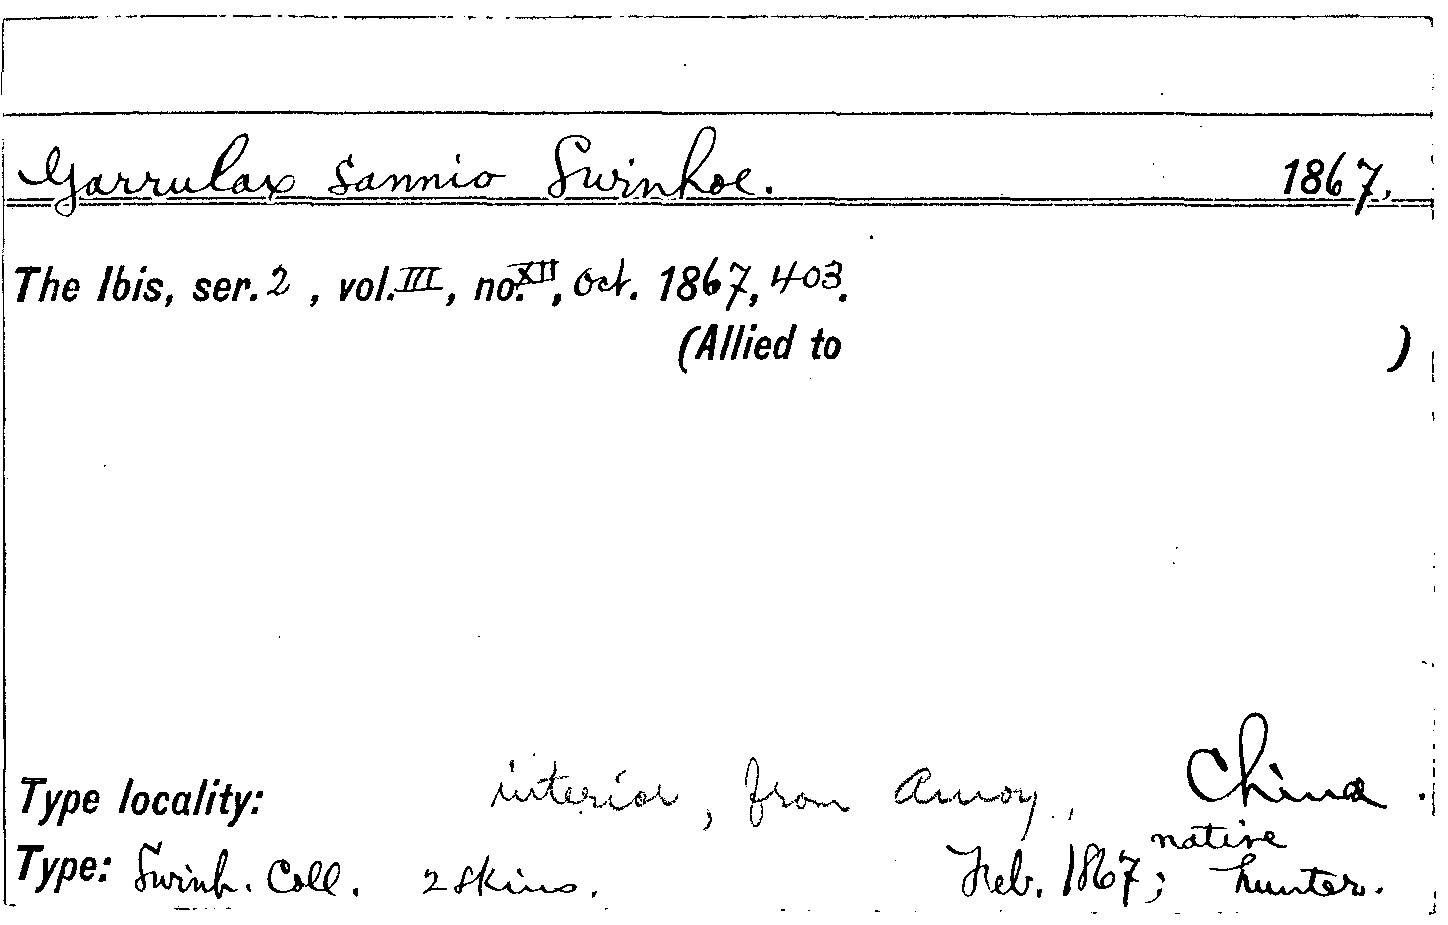 Garrulax sannio Swinhoe. 1867.
The Ibis, ser. 2, vol. III, no. XII, Oct. 1867, 403.
(Allied to )
Type locality: interior, from Amoy, China.
Type: Swinh. Coll. 2 skins. Feb. 1867; native hunter.